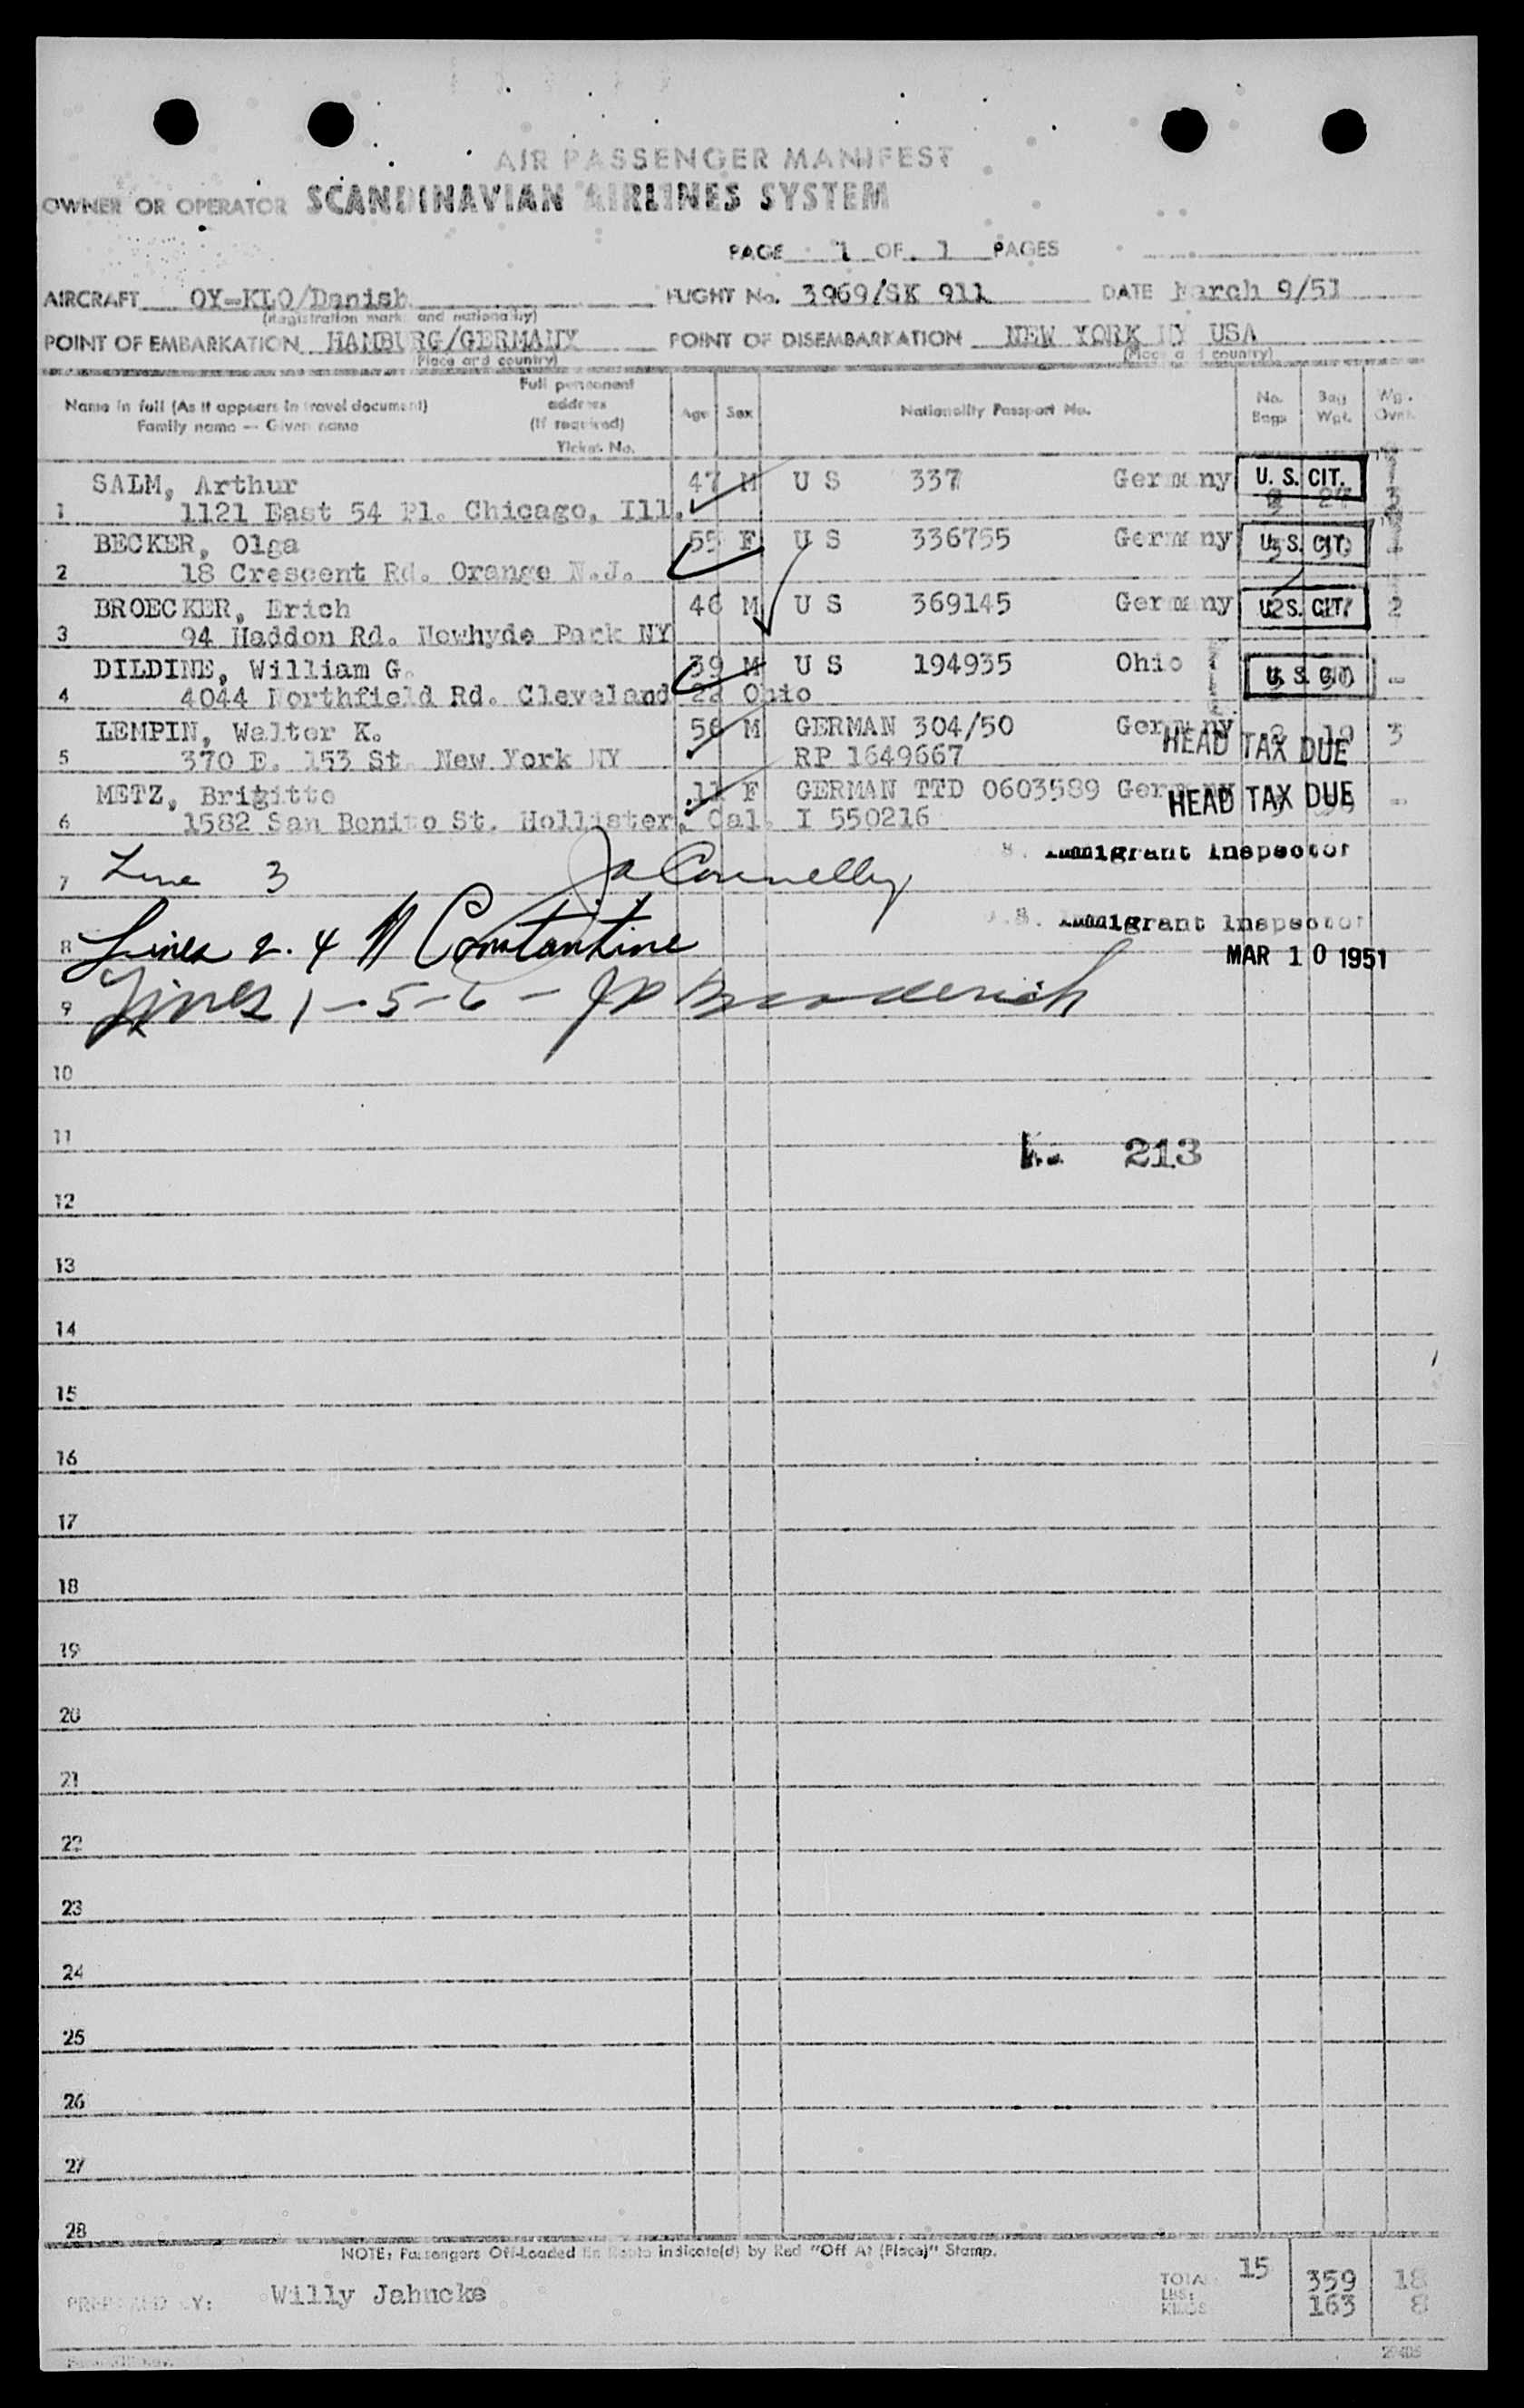 AIR PASSENGER MANIFEST
OWNER OR OPERATOR SCANDINAVIAN AIRLINES SYSTEM
PAGE 1 OF 1 PAGES
AIRCRAFT OY-KLO/Danish FLIGHT No. 3969/SK 911 DATE March 9/51
(Registration marks and nationality)
POINT OF EMBARKATION HAMBURG/GERMANY POINT OF DISEMBARKATION NEW YORK NY USA
(Place and country) (Place and country)
Name in full (As it appears in travel document) Family name — Given name
Full permanent address (If required) Ticket No.
Age Sex Nationality Passport No. No. Bags Bag Wgt. Wg. Ovrt.
SALM, Arthur 47 M U S 337 Germany U. S. CIT.
1 1121 East 54 Pl. Chicago, Ill. 3
BECKER, Olga 55 F U S 336755 Germany U. S. CIT.
2 18 Crescent Rd. Orange N.J.
BROECKER, Erich 46 M U S 369145 Germany U. S. CIT. 2
3 94 Haddon Rd. Newhyde Park NY
DILDINE, William G. 39 M U S 194935 Ohio U. S. CIT. -
4 4044 Northfield Rd. Cleveland 22 Ohio
LEMPIN, Walter K. 56 M GERMAN 304/50 Germany 3
HEAD TAX DUE
5 370 E. 153 St. New York NY RP 1649667
METZ, Brigitte 11 F GERMAN TTD 0603589 Germany -
HEAD TAX DUE
6 1582 San Benito St. Hollister, Cal. I 550216
7 Line 3 Ja Connelly Immigrant Inspector
8 Lines 2. 4 N Constantine U.S. Immigrant Inspector
MAR 10 1951
9 Lines 1-5-6 - JP Broderick
10
11
213
12
13
14
15
16
17
18
19
20
21
22
23
24
25
26
27
28
NOTE: Passengers Off-Loaded En Route indicate(d) by Red "Off At (Place)" Stamp.
PREPARED BY: Willy Jahncke
TOTAL 15
LBS: 359 18
KILOS 163 8